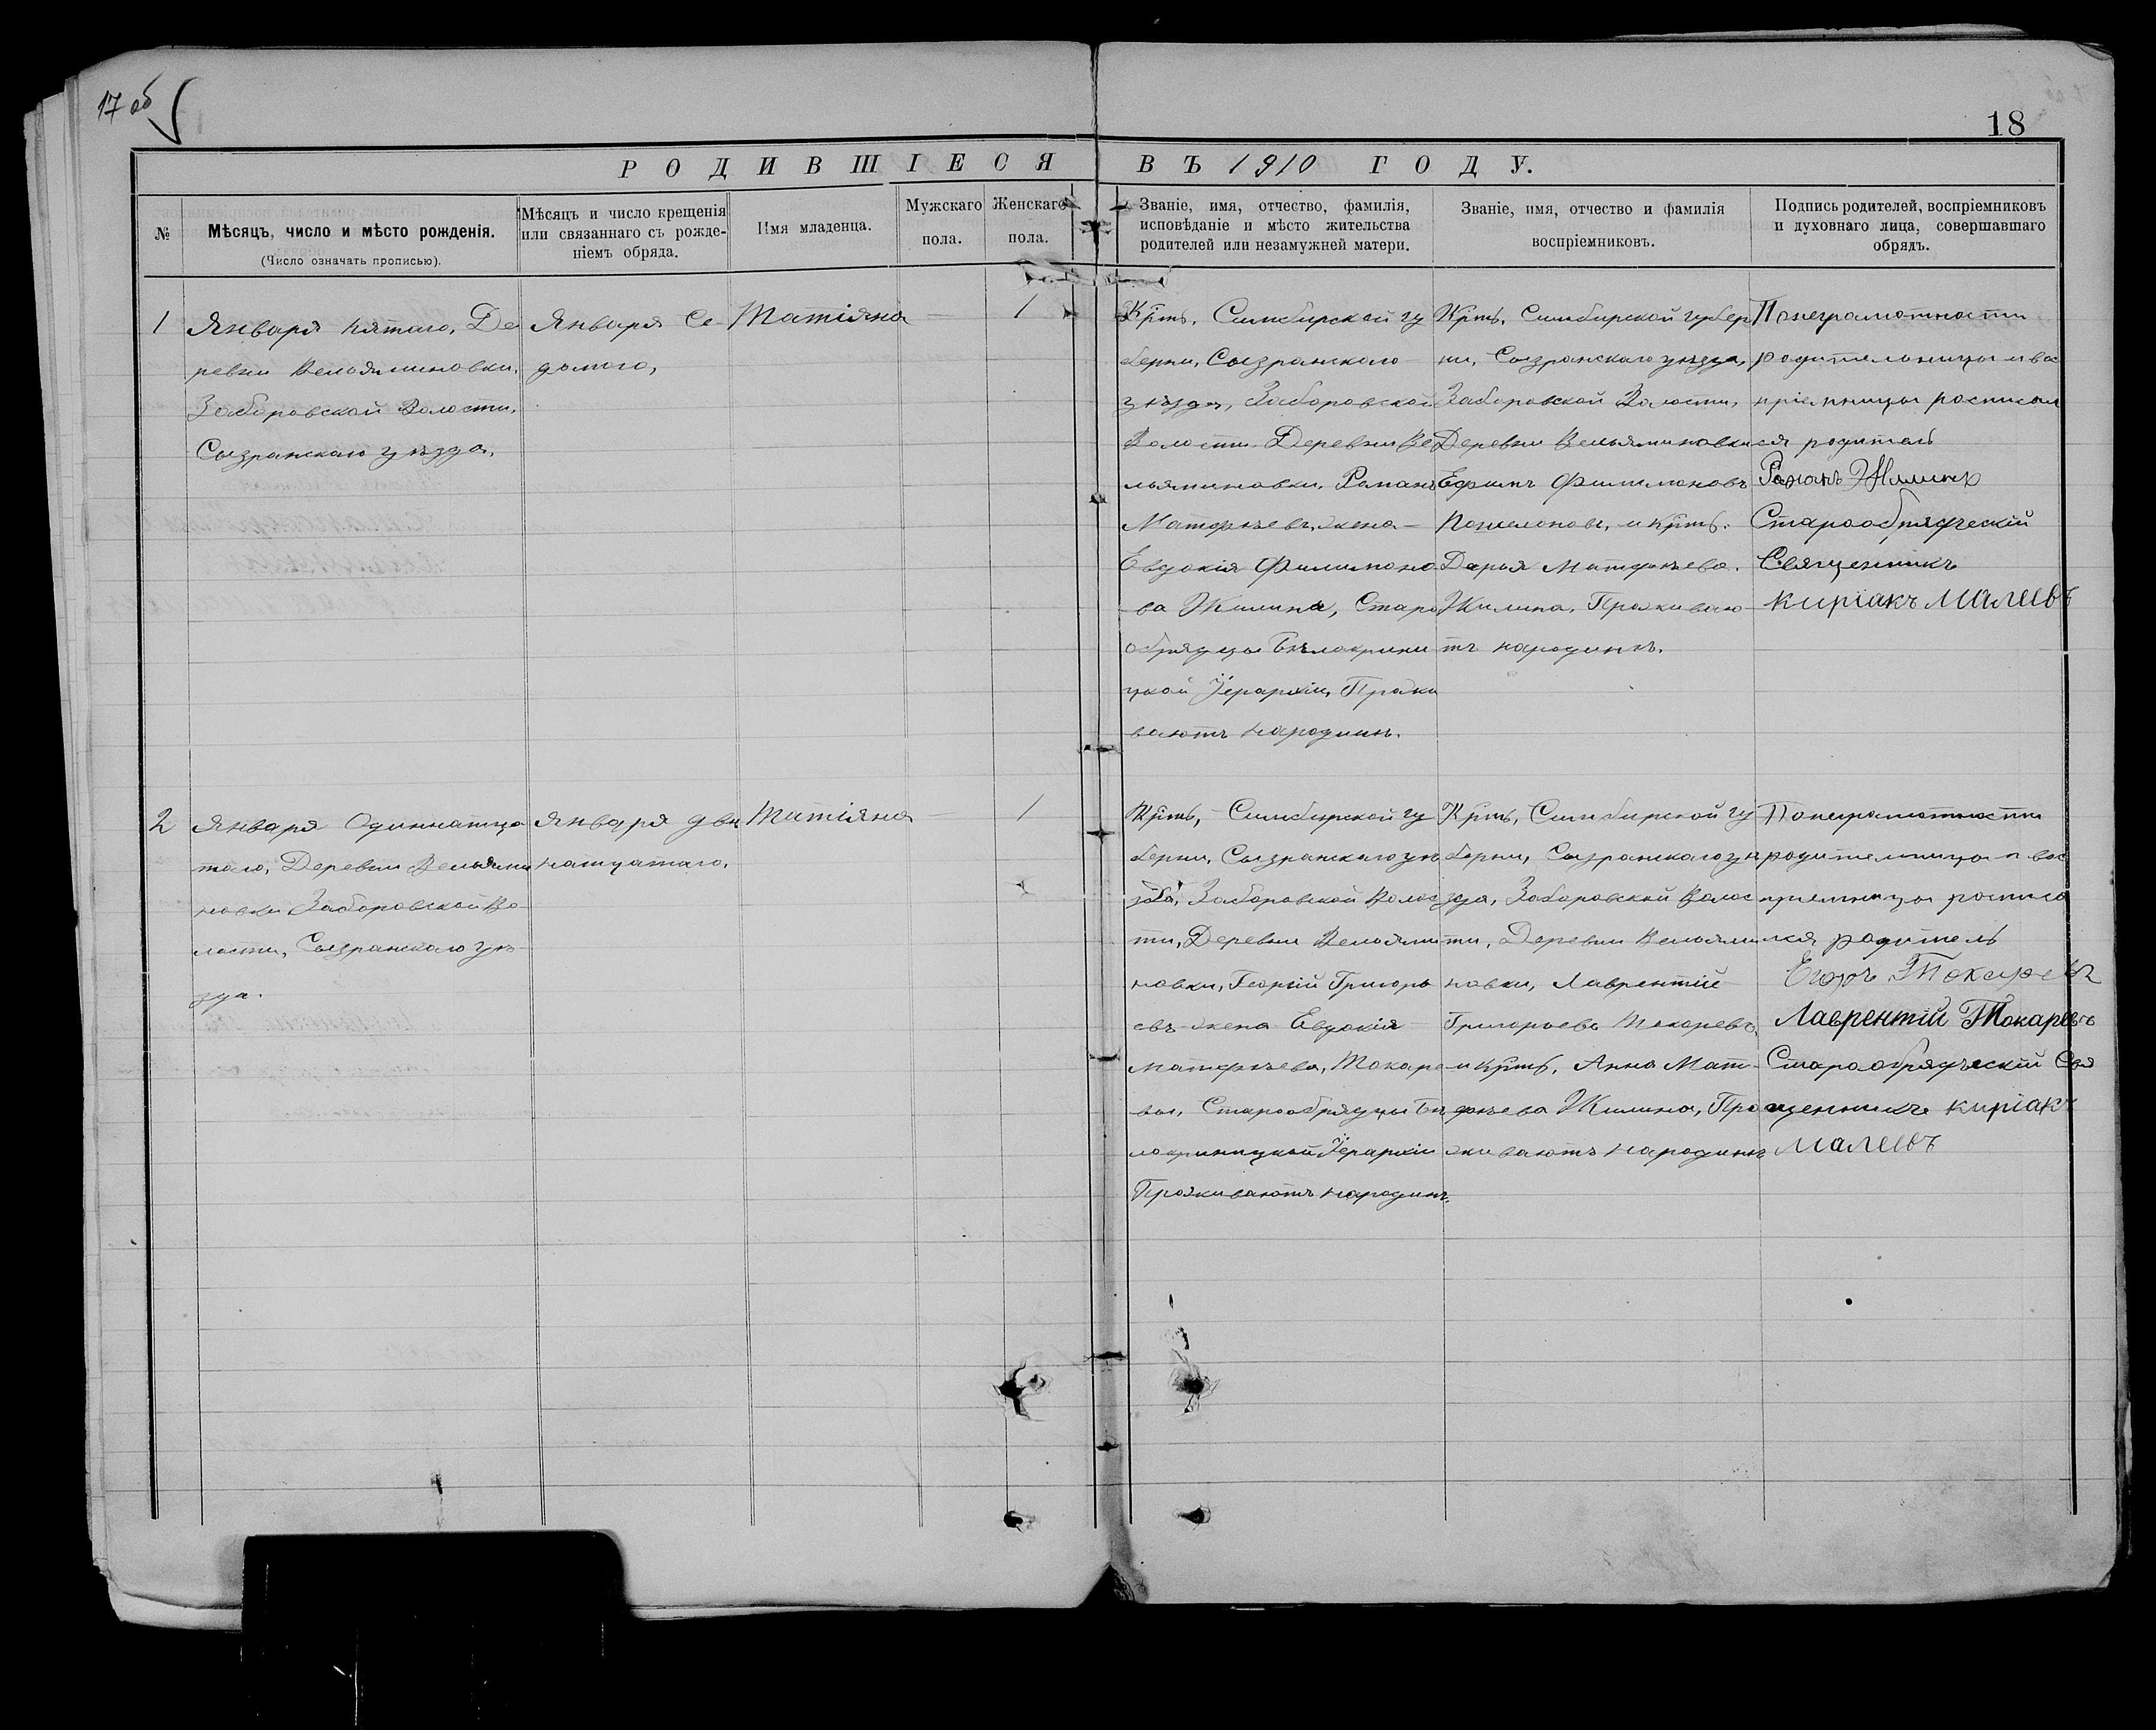 17 об
18
РОДИВШІЕСЯ ВЪ 1910 ГОДУ.
№
Мѣсяцъ, число и мѣсто рожденія.
(Число означать прописью).
Мѣсяцъ и число крещенія
или связаннаго съ рожде-
ніемъ обряда.
Имя младенца.
Мужскаго
пола.
Женскаго
пола.
Званіе, имя, отчество, фамилія,
исповѣданіе и мѣсто жительства
родителей или незамужней матери.
Званіе, имя, отчество и фамилія
воспріемниковъ.
Подпись родителей, воспріемниковъ
и духовнаго лица, совершавшаго
обрядъ.
1
Января пятаго, Де
ревни Вельяминовки,
Заборовской Волости,
Сызранскаго уѣзда.
Января Се-
дьмого,
Татіяна
1
Крть. Симбирской гу
берни, Сызранскаго
уѣзда, Заборовской
Волости Деревни Ве
льяминовки. Романъ
Матфѣевъ, жена –
Евдокія Филимоно
ва Жилина, Старо
обрядцы Бѣлокрини
цкой Іерархіи, Прожи
ваютъ народинѣ.
Крть. Симбирской губер
ни, Сызранскаго уѣзда,
Заборовской Волости,
Деревни Вельяминовки
Ефимъ Филимоновъ
и Крть.
Дарья Матфѣева.
Жилина, Проживаю
тъ народинѣ.
Понеграмотности
родительницы и вос
пріемницы росписал
ся родитель
Романъ Жилинъ
Старообрядческій
Священникъ
Киріакъ Малѣевъ
2
Января Одиннатца
таго, Деревни Вельями
новки Заборовской Во-
лости, Сызранскаго уѣ-
зда.
Января двѣ
натцатаго.
Татіяна
1
Крть, – Симбирской гу
берни, Сызранскаго уѣ
зда, Заборовской Волос
ти, Деревни Вельями
новки, Георгій Григорь
евъ жена Евдокія
Матфѣева, Токаре
вы, Старообрядцы Бѣ
локриницкой Іерархіи
Проживаютъ народинѣ.
Крть, Симбирской гу
берни, Сызранскаго уѣ
зда, Заборовской Волос
ти, Деревни Вельями
новки, Лаврентій
Григорьевъ Токаревъ,
и Крть, Анна Мат-
фѣева Жилина, Про
живаютъ народинѣ
Понеграмотности
родительницы и вос
пріемницы росписа
лся родитель
Егоръ Токаревъ
Лаврентій Токаревъ
Старообрядческій Свя
щенникъ Киріакъ
Малѣевъ